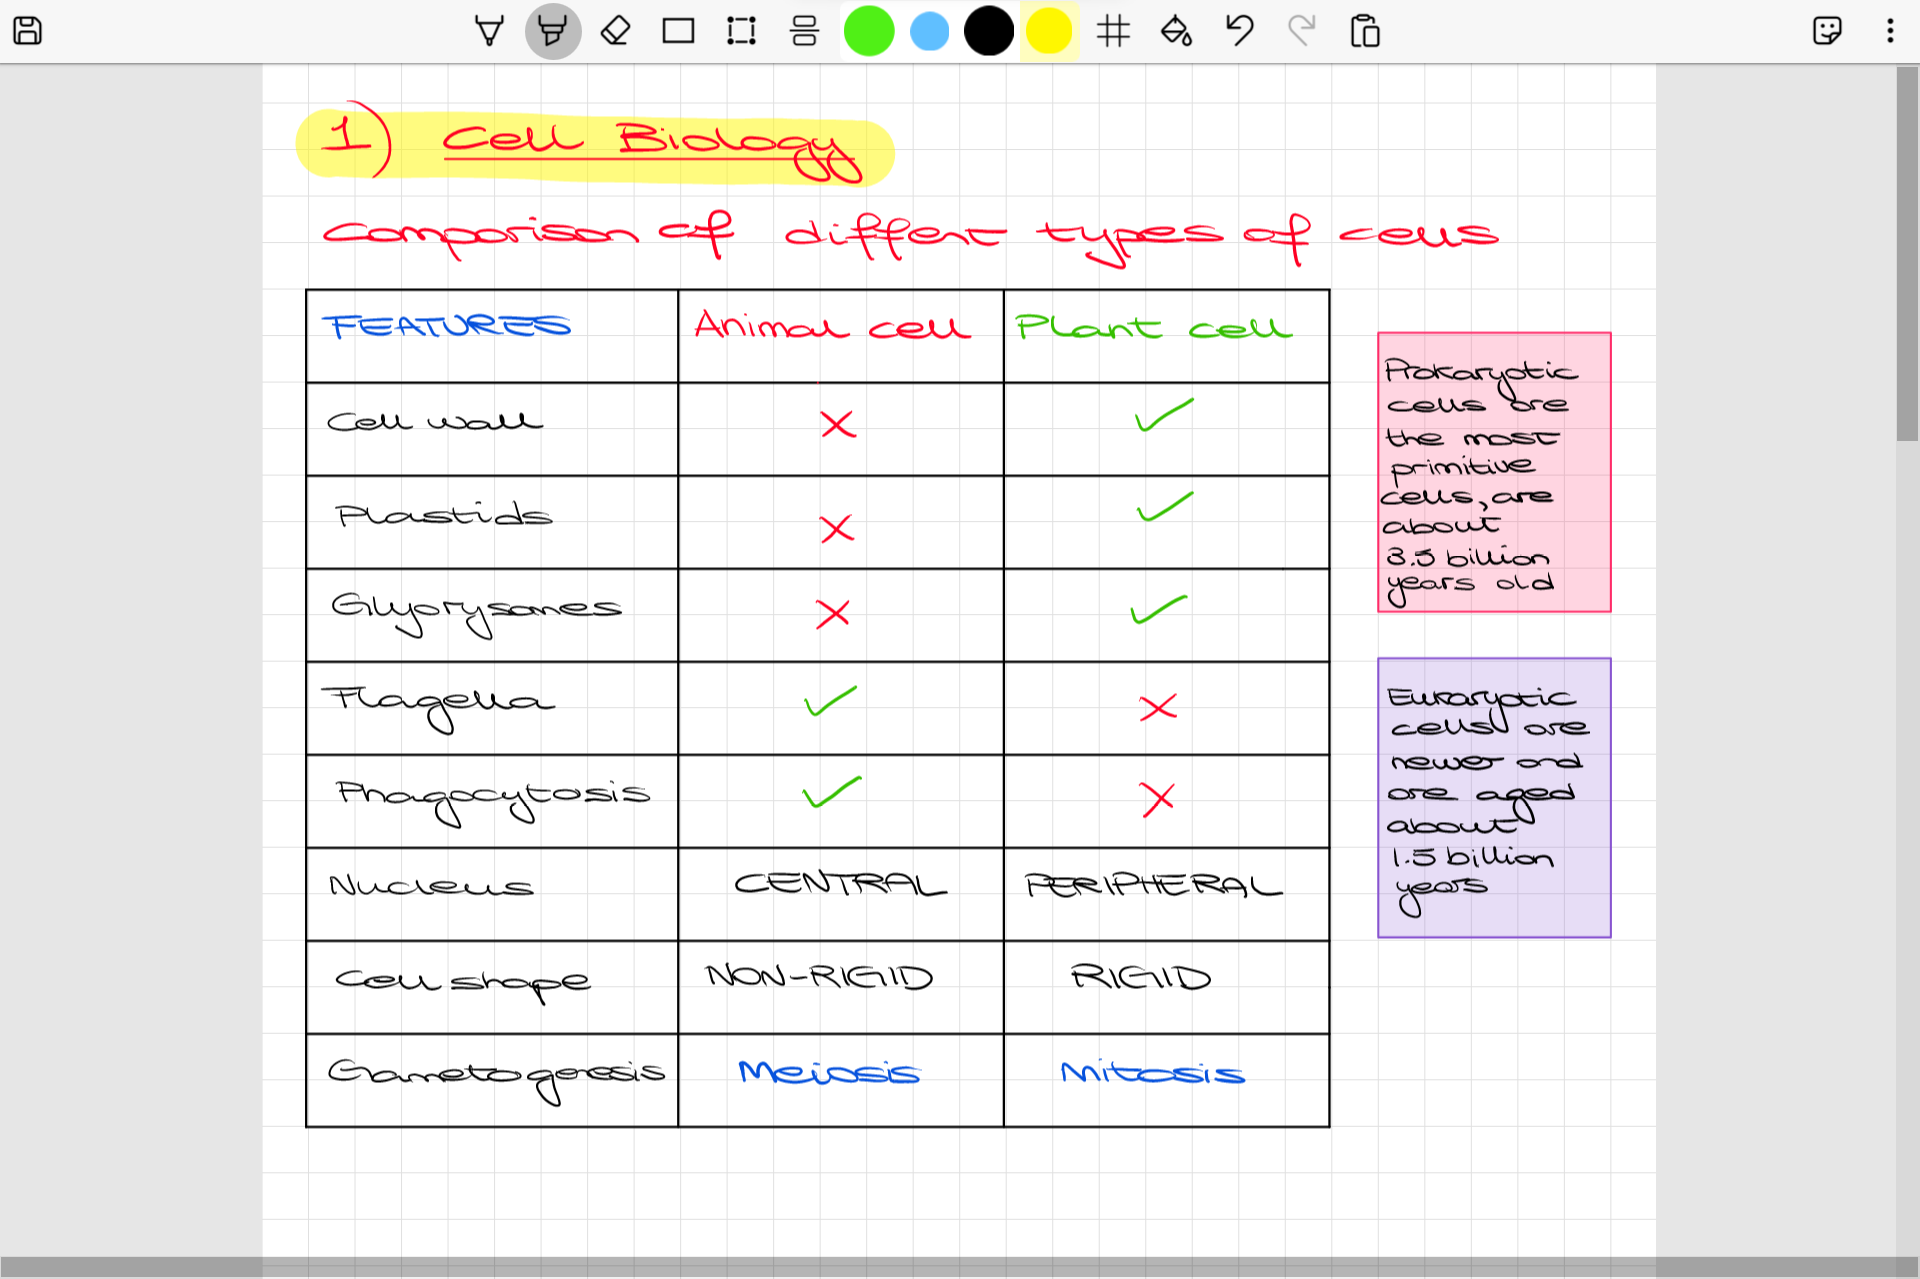 1) Cell Biology
comparison of diffent types of cells
FEATURES Animal cell Plant cell
Cell wall ✗ ✓
Plastids ✗ ✓
Glyorysomes ✗ ✓
Flagella ✓ ✗
Phagocytosis ✓ ✗
Nucleus CENTRAL PERIPHERAL
Cell shape NON-RIGID RIGID
Gametogenesis Meiosis Mitosis
Prokaryotic
cells are
the most
primitive
cells, are
about
3.5 billion
years old
Eukaryotic
cells are
newer and
are aged
about
1.5 billion
years